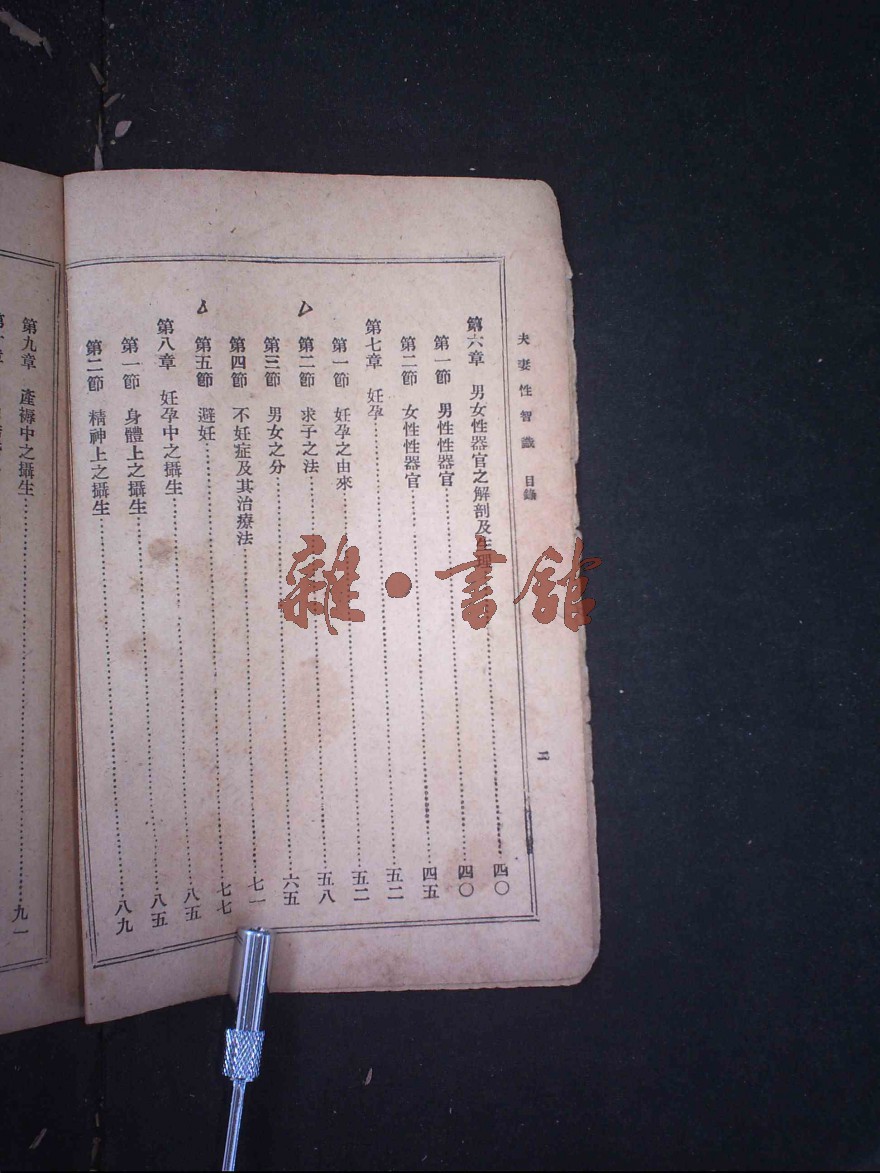 夫妻性智識 目錄 二
第六章 男女性器官之解剖及生理……四〇
第一節 男性性器官……四〇
第二節 女性性器官……四五
第七章 妊孕……五二
第一節 妊孕之由來……五二
第二節 求子之法……五八
第三節 男女之分……六五
第四節 不妊症及其治療法……七一
第五節 避妊……七七
第八章 妊孕中之攝生……八五
第一節 身體上之攝生……八五
第二節 精神上之攝生……八九
第九章 產褥中之攝生……九一
雜·書館